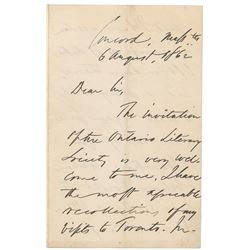 Concord, Mass.tts
6 August, 1862
Dear Sir,
The invitation
of the Ontario Literary
Society is very wel-
come to me. I have
the most agreeable
recollections of my
visits to Toronto.